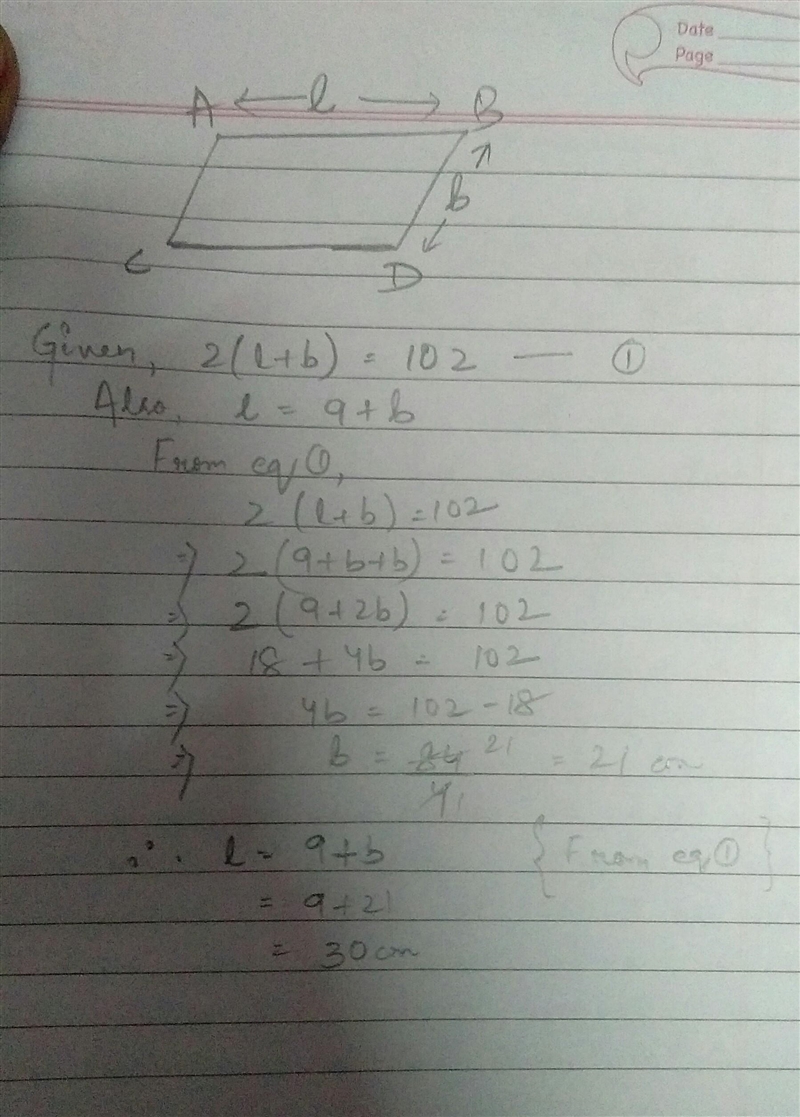 Date
Page
A ← l → B
b
C D
Given, 2(l+b) = 102 — ①
Also, l = 9+b
From eq ①,
2(l+b) = 102
⇒ 2(9+b+b) = 102
⇒ 2(9+2b) = 102
⇒ 18 + 4b = 102
⇒ 4b = 102 - 18
⇒ b = 84/4 21 = 21 cm
1
∴ l = 9+b {From eq ①}
= 9+21
= 30 cm